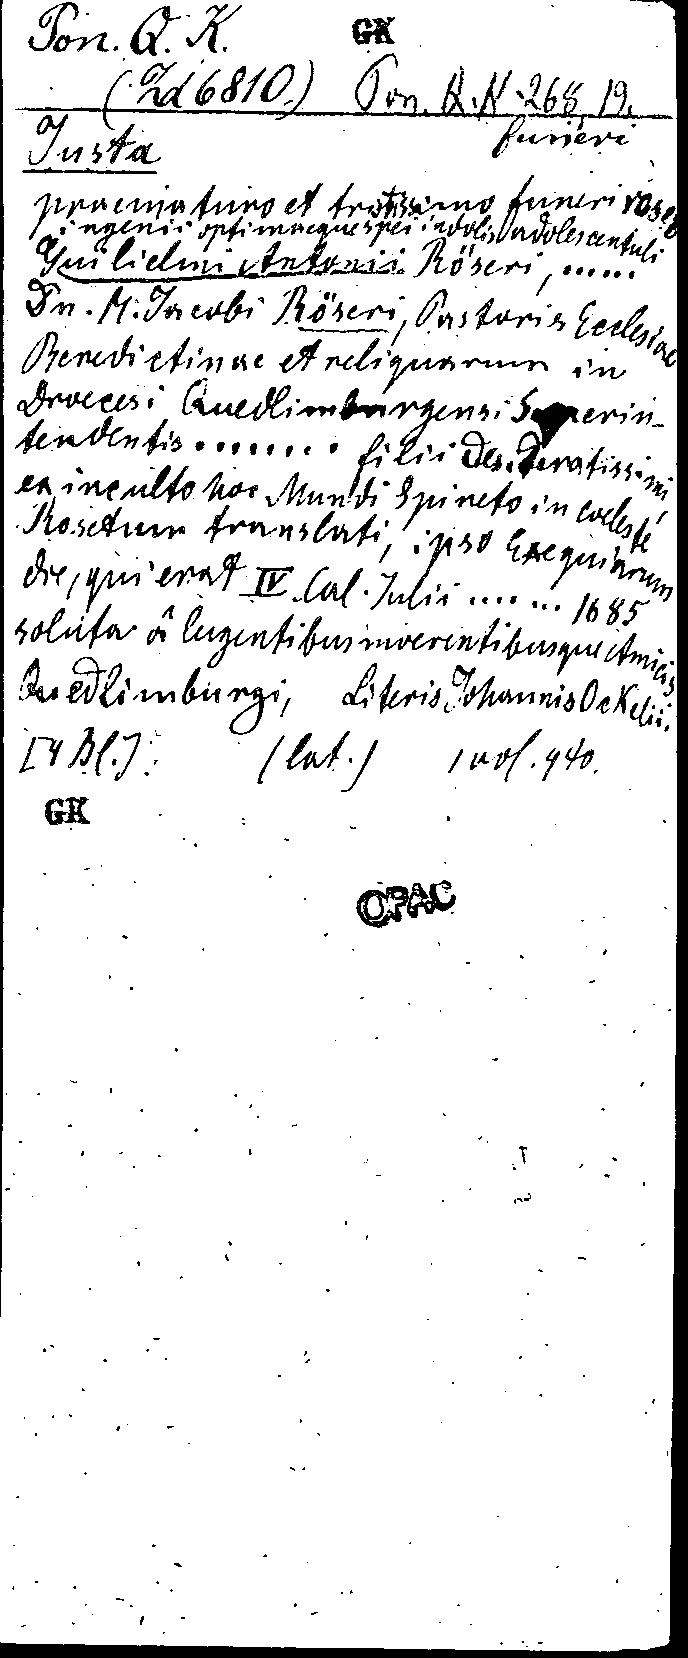 Pon. Q. K. GK
(Zd 6810.) Pon. Q. K. 268, 19.
Justa funeri
praematuro et tristissimo funeri rosei
ingenii optimaequespei indolis adolescentuli
Guilielmi Antonii Röseri, ......
Dn. M. Jacobi Röseri, Pastoris Ecclesiae
Benedictinae et reliquarum in
Dioecesi Quedlimburgensi Superin-
tendentis ........ filii desideratissimi,
ex inculto hoc Mundi Spineto in coeleste
Rosetum translati, ipso Exequiarum
die, qui erat IV. Cal. Julii ....... 1685
soluta â lugentibus moerentibusque Amicis
Quedlimburgi, Literis Johannis Ockelii.
[4 Bl.]. (lat.) 940.
GK
OPAC